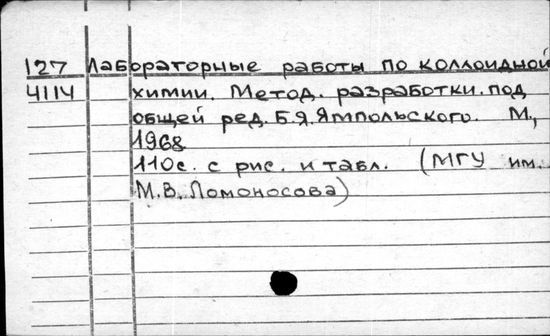 127 Лабораторные работы по коллоидной
4114 химии. Метод. разработки. под
общей ред. Б.Я. Ямпольского. М.,
1968
110с. с рис. и табл. (МГУ им.
М.В. Ломоносова)